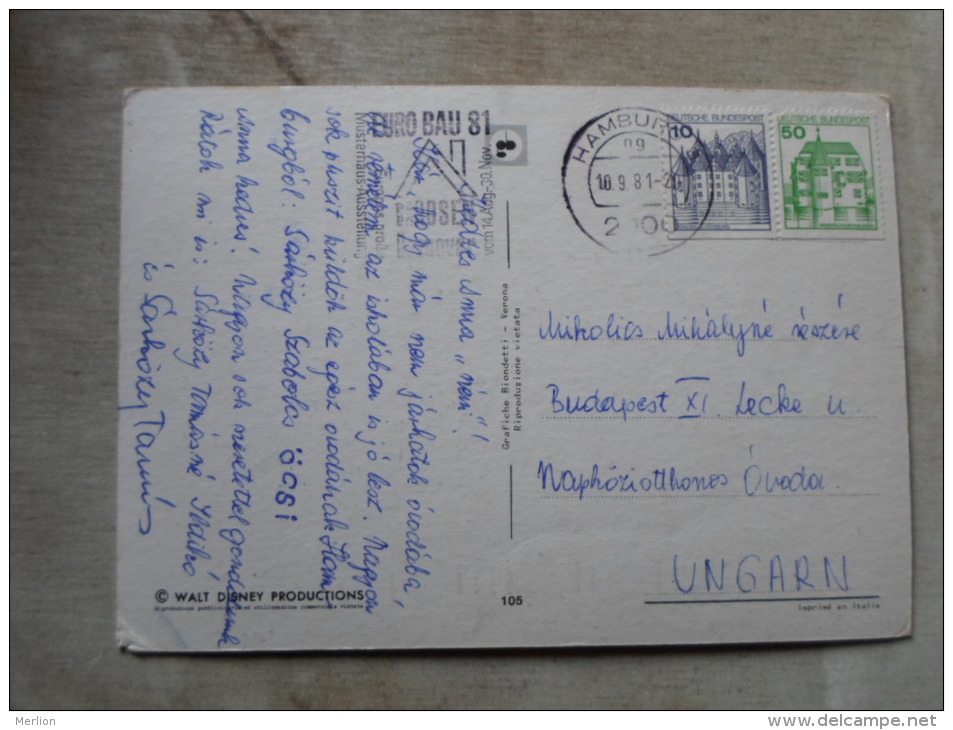 Kedves Anna „néni"!
hogy már nem járhatok óvodába,
de remélem az iskolában is jó lesz. Nagyon
sok puszit küldök az egész óvodának Ham-
burgból: Sárközy Szabolcs ÖCSI
Anna kedves! Nagyon sok szeretettel gondolunk
Rátok mi is: Sárközy Tamásné Ildikó
és Sárközy Tamás
EURO BAU 81
Musterhaus-Ausstellung
vom 14. Aug.-30. Nov.
HAMBURG
ng
10.9.81-2
2000
10
DEUTSCHE BUNDESPOST
50
DEUTSCHE BUNDESPOST
Grafiche Biondetti - Verona
Riproduzione vietata
Mikolics Mihályné részére
Budapest XI. Lecke u.
Napköziotthonos Óvoda
UNGARN
© WALT DISNEY PRODUCTIONS
105
Imprimé en Italie
Merlion
www.delcampe.net